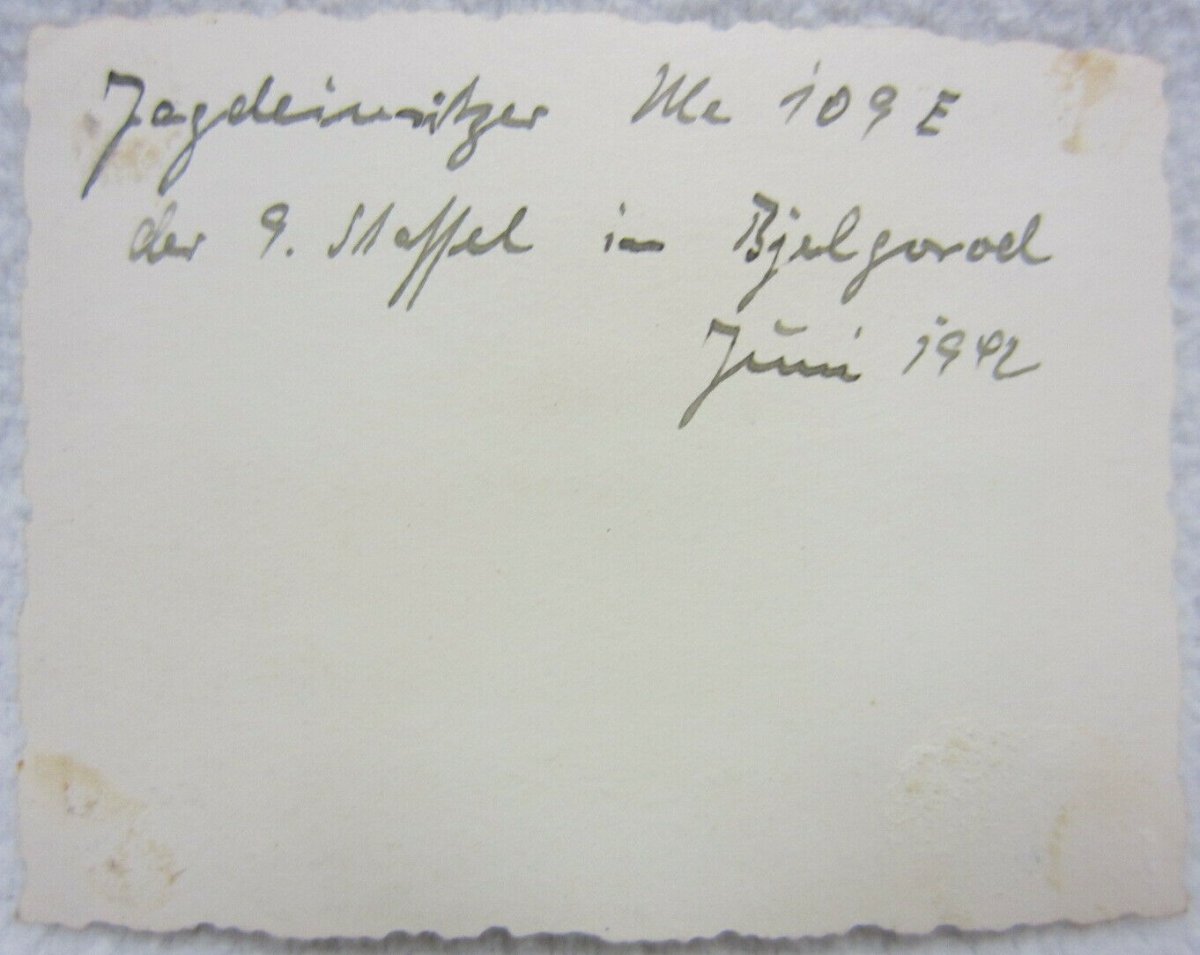 Jagdeinsitzer Me 109 E
der 9. Staffel in Bjelgorod
Juni 1942